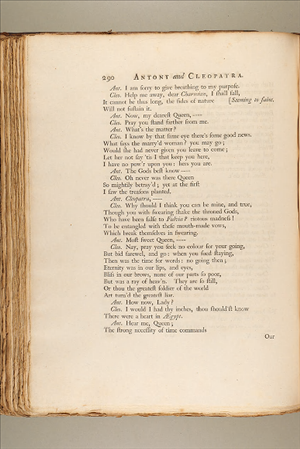 290 ANTONY and CLEOPATRA.
Ant. I am sorry to give breathing to my purpose.
Cleo. Help me away, dear Charmian, I shall fall,
It cannot be thus long, the sides of nature [Seeming to faint.
Will not sustain it.
Ant. Now, my dearest Queen, —
Cleo. Pray you stand further from me.
Ant. What's the matter?
Cleo. I know by that same eye there's some good news.
What says the marry'd woman? you may go;
Would she had never given you leave to come;
Let her not say 'tis I that keep you here,
I have no pow'r upon you: hers you are.
Ant. The Gods best know —
Cleo. Oh never was there Queen
So mightily betray'd; yet at the first
I saw the treasons planted.
Ant. Cleopatra, —
Cleo. Why should I think you can be mine, and true,
Though you with swearing shake the throned Gods,
Who have been false to Fulvia? riotous madness!
To be entangled with these mouth-made vows,
Which break themselves in swearing.
Ant. Most sweet Queen, —
Cleo. Nay, pray you seek no colour for your going,
But bid farewel, and go: when you sued staying,
Then was the time for words: no going then;
Eternity was in our lips, and eyes,
Bliss in our brows, none of our parts so poor,
But was a ray of heav'n. They are so still,
Or thou the greatest soldier of the world
Art turn'd the greatest liar.
Ant. How now, Lady?
Cleo. I would I had thy inches, thou should'st know
There were a heart in Ægypt.
Ant. Hear me, Queen;
The strong necessity of time commands
Our